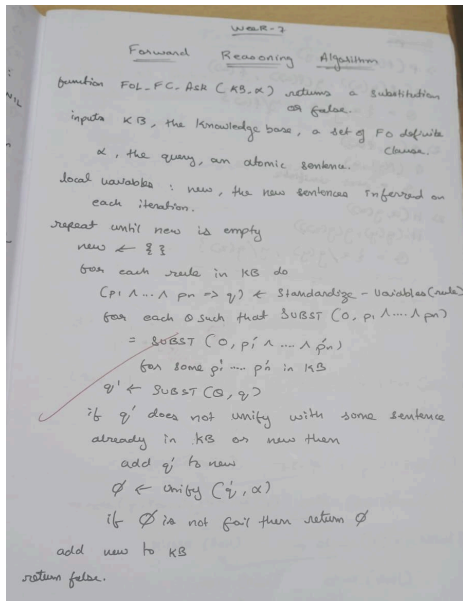 WEEK-7
Forward Reasoning Algorithm
function FOL_FC_Ask (KB, α) returns a substitution
or false.
inputs KB, the knowledge base, a set of FO definite
clause.
α, the query, an atomic sentence.
local variables : new, the new sentences inferred on
each iteration.
repeat until new is empty
new ← { }
for each rule in KB do
(p1 ∧ ... ∧ pn => q) ← Standardize - Variables (rule)
for each θ such that SUBST (θ, p1 ∧ .... ∧ pn)
= SUBST (θ, p1' ∧ .... ∧ pn')
for some p1' ..... pn' in KB
q' ← SUBST (θ, q)
if q' does not unify with some sentence
already in KB or new then
add q' to new
Ø ← Unify (q', α)
if Ø is not fail then return Ø
add new to KB
return false.